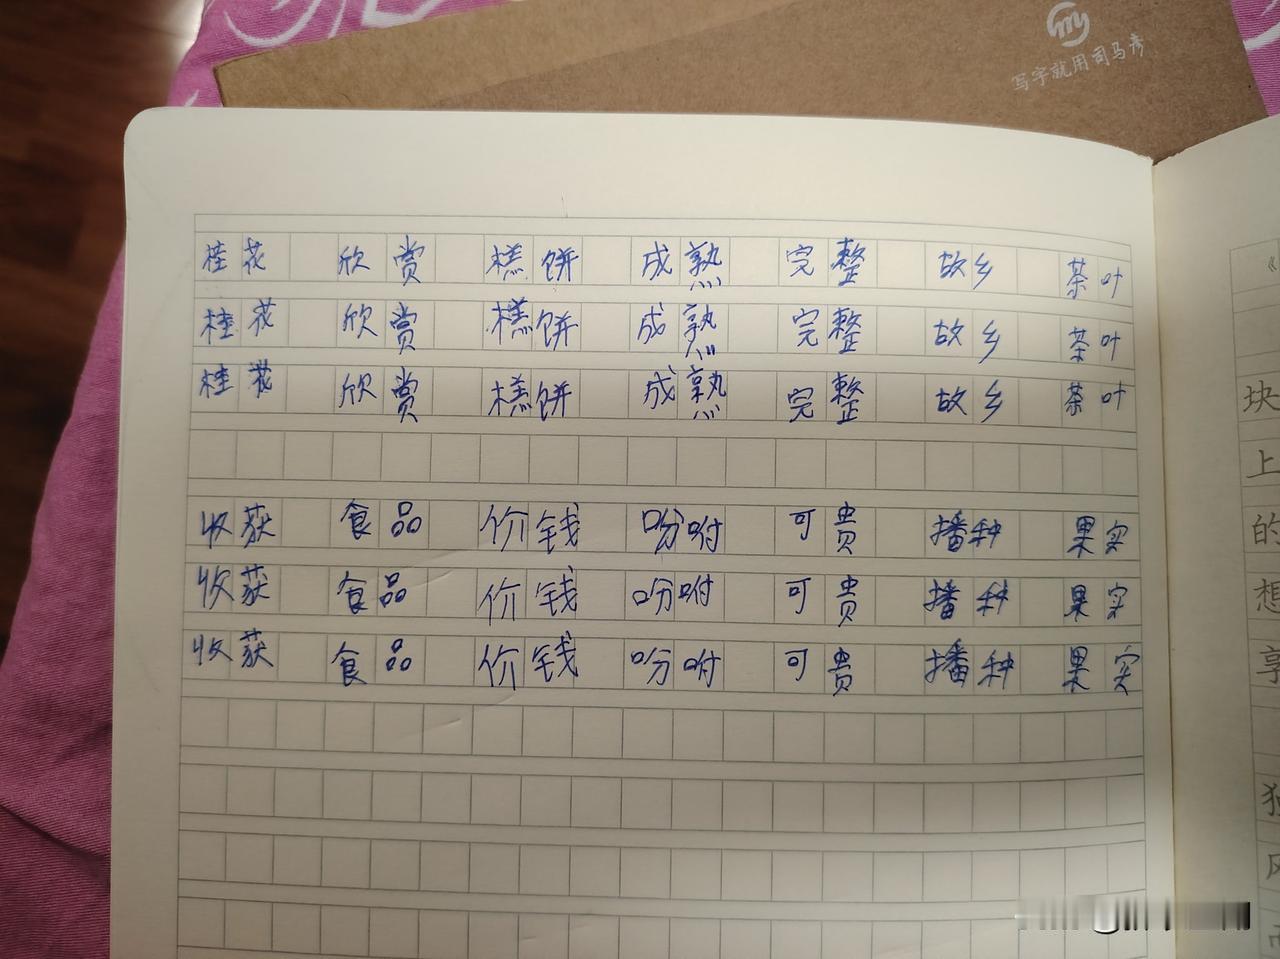 写字就用司马彦
桂花 欣赏 糕饼 成熟 完整 故乡 茶叶
桂花 欣赏 糕饼 成熟 完整 故乡 茶叶
桂花 欣赏 糕饼 成熟 完整 故乡 茶叶
收获 食品 价钱 吩咐 可贵 播种 果实
收获 食品 价钱 吩咐 可贵 播种 果实
收获 食品 价钱 吩咐 可贵 播种 果实
块
上
的
想
享